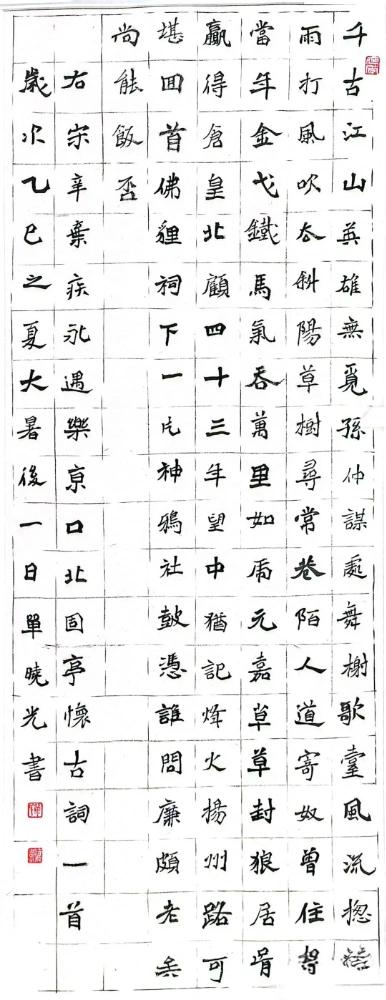 千古江山英雄無覓孫仲謀處舞榭歌臺風流揔
雨打風吹去斜陽草樹尋常巷陌人道寄奴曾住想
當年金戈鐵馬氣吞萬里如虎元嘉草草封狼居胥
贏得倉皇北顧四十三年望中猶記烽火揚州路可
堪囬首佛貍祠下一片神鴉社鼓憑誰問廉頗老矣
尚能飯否
右宋辛棄疾永遇樂亰口北固亭懷古詞一首
歲次乙巳之夏大暑後一日單曉光書